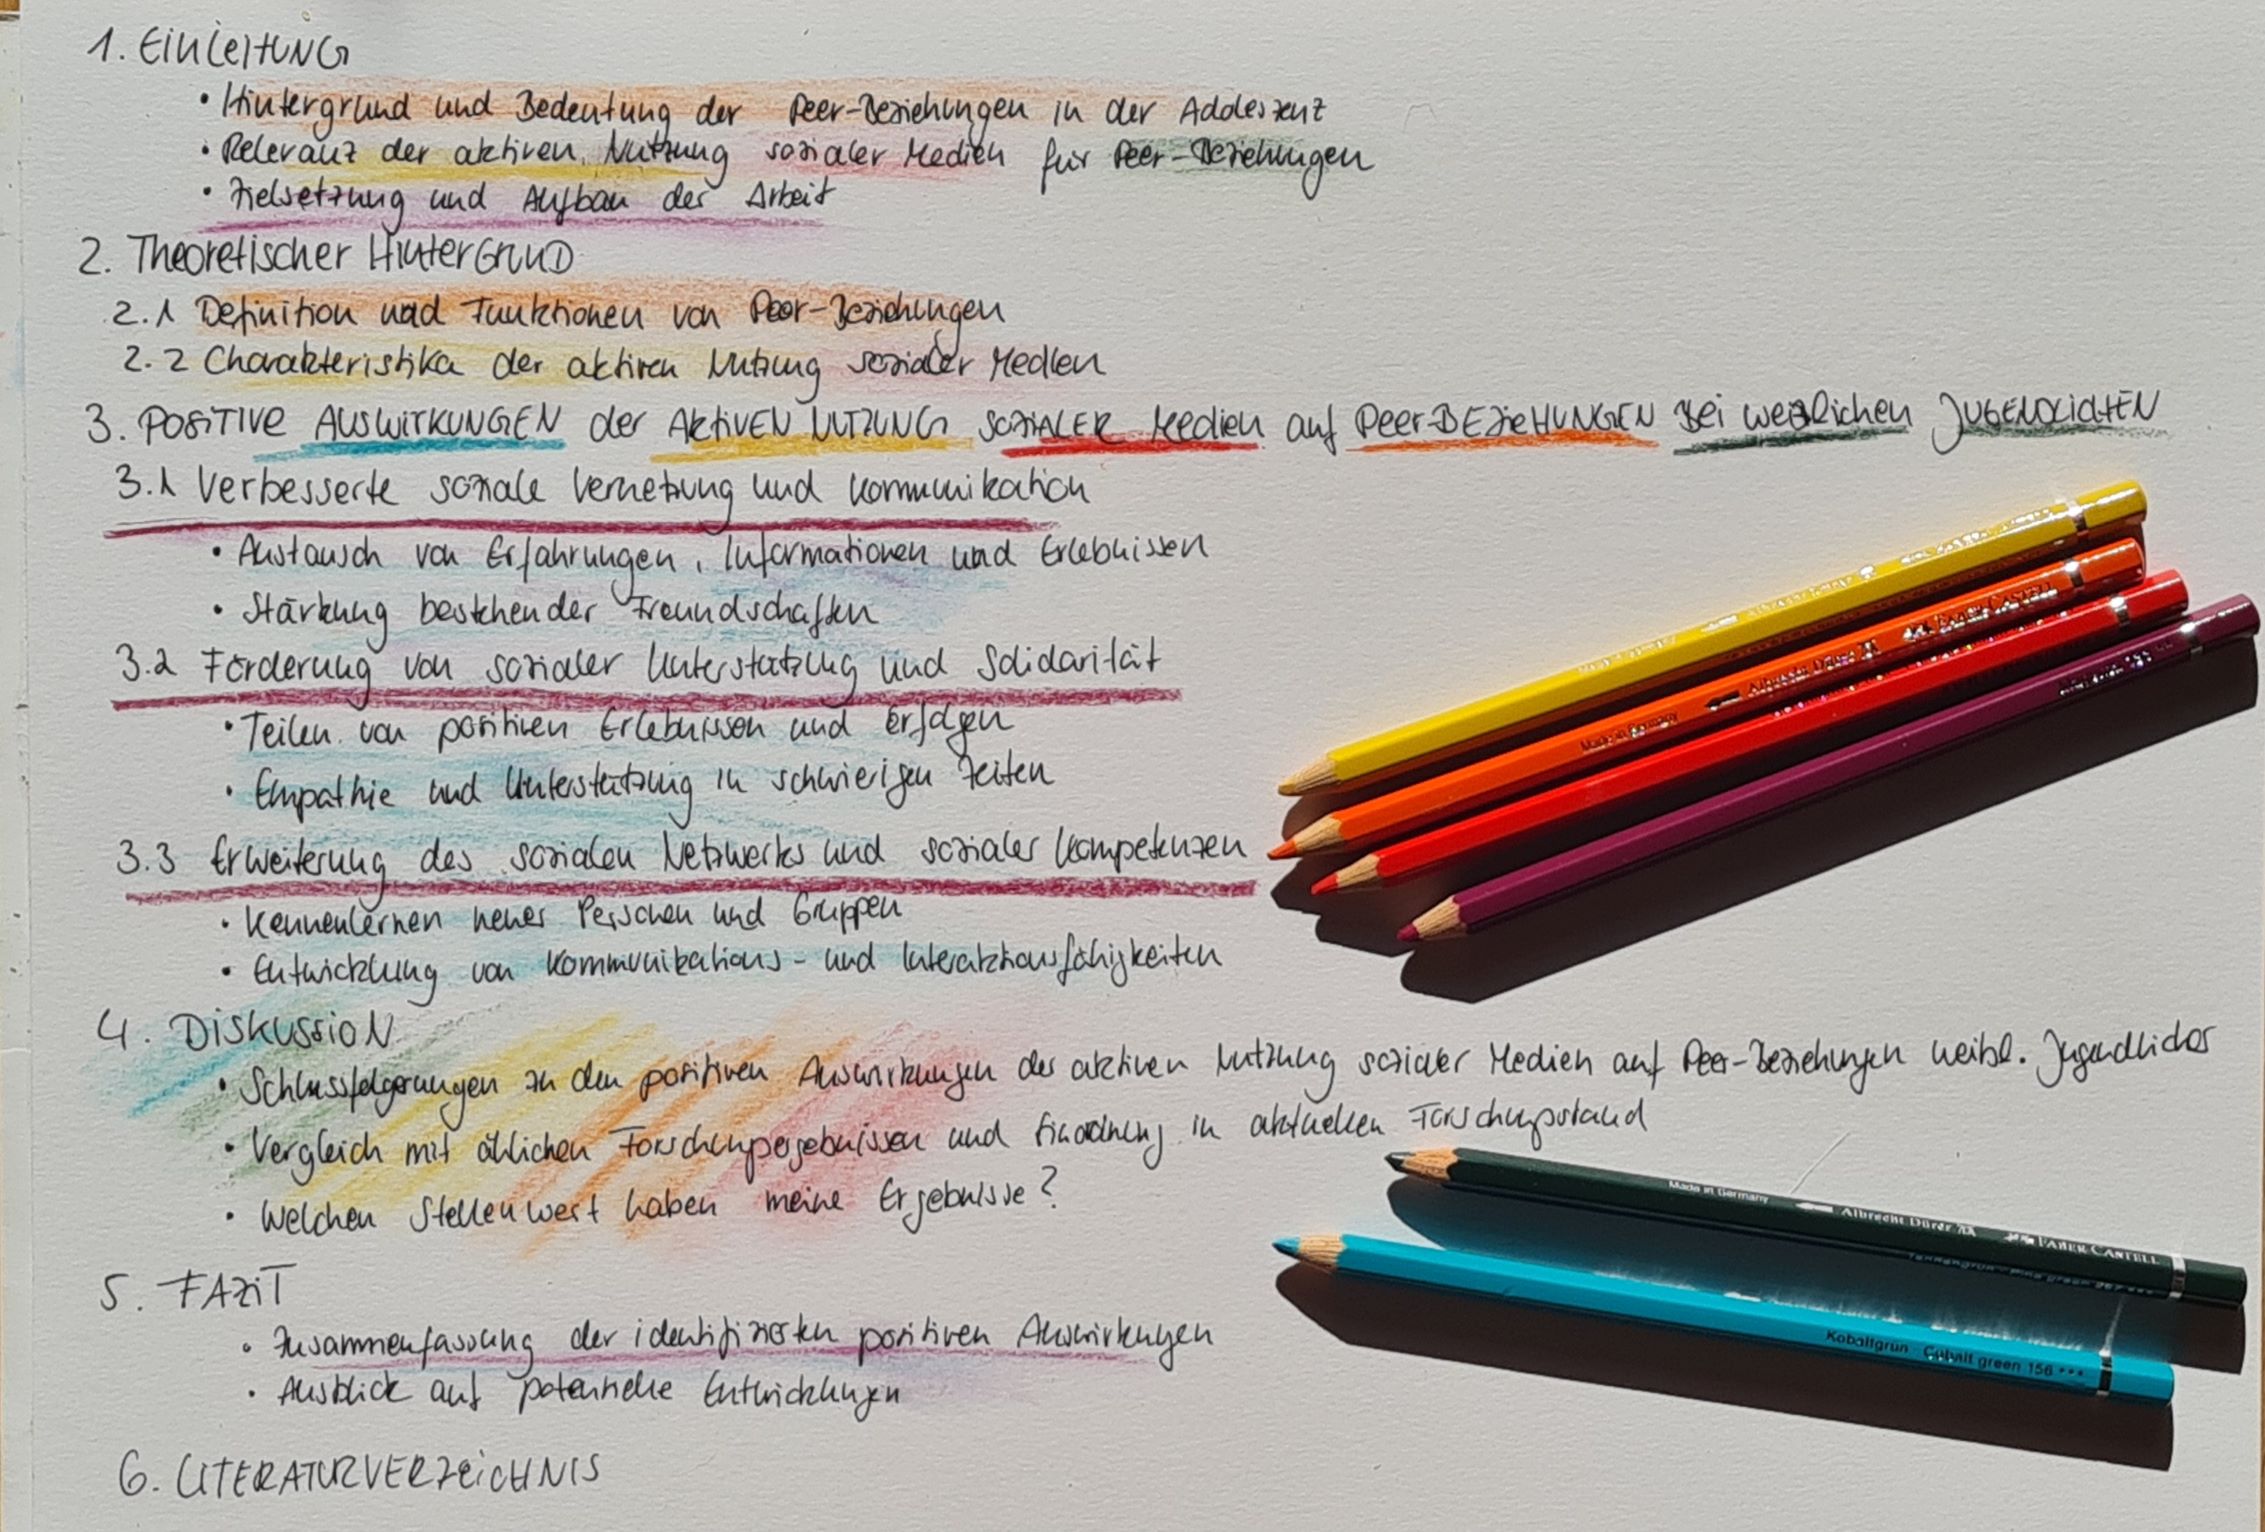 1. EINLEITUNG
• Hintergrund und Bedeutung der Peer-Beziehungen in der Addoleszenz
• Relevanz der aktiven Nutzung sozialer Medien für Peer-Beziehungen
• Zielsetzung und Aufbau der Arbeit
2. Theoretischer HinterGRUND
2.1 Definition und Funktionen von Peer-Beziehungen
2.2 Charakteristika der aktiven Nutzung sozialer Medien
3. POSITIVE AUSWIRKUNGEN der AKTIVEN NUTZUNG SOZIALER Medien auf Peer-BEZIEHUNGEN bei weiblichen JUGENDLICHEN
3.1 Verbesserte soziale Vernetzung und Kommunikation
• Austausch von Erfahrungen, Informationen und Erlebnissen
• Stärkung bestehender Freundschaften
3.2 Förderung von sozialer Unterstützung und Solidarität
• Teilen von positiven Erlebnissen und Erfolgen
• Empathie und Unterstützung in schwierigen Zeiten
3.3 Erweiterung des sozialen Netzwerks und sozialer Kompetenzen
• Kennenlernen neuer Personen und Gruppen
• Entwicklung von Kommunikations- und Interaktionsfähigkeiten
4. DISKUSSION
• Schlussfolgerungen zu den positiven Auswirkungen der aktiven Nutzung sozialer Medien auf Peer-Beziehungen weibl. Jugendlicher
• Vergleich mit ählichen Forschungsergebnissen und Einordnung in aktuellen Forschungsstand
• Welchen Stellenwert haben meine Ergebnisse?
5. FAZIT
• Zusammenfassung der identifizierten positiven Auswirkungen
• Ausblick auf potentielle Entwicklungen
6. LITERATURVERZEICHNIS
Made in Germany Albrecht Dürer FABER-CASTELL
Made in Germany Albrecht Dürer FABER-CASTELL
Tannengrün - Pine green 267 ***
Kobaltgrün Cobalt green 156 ***